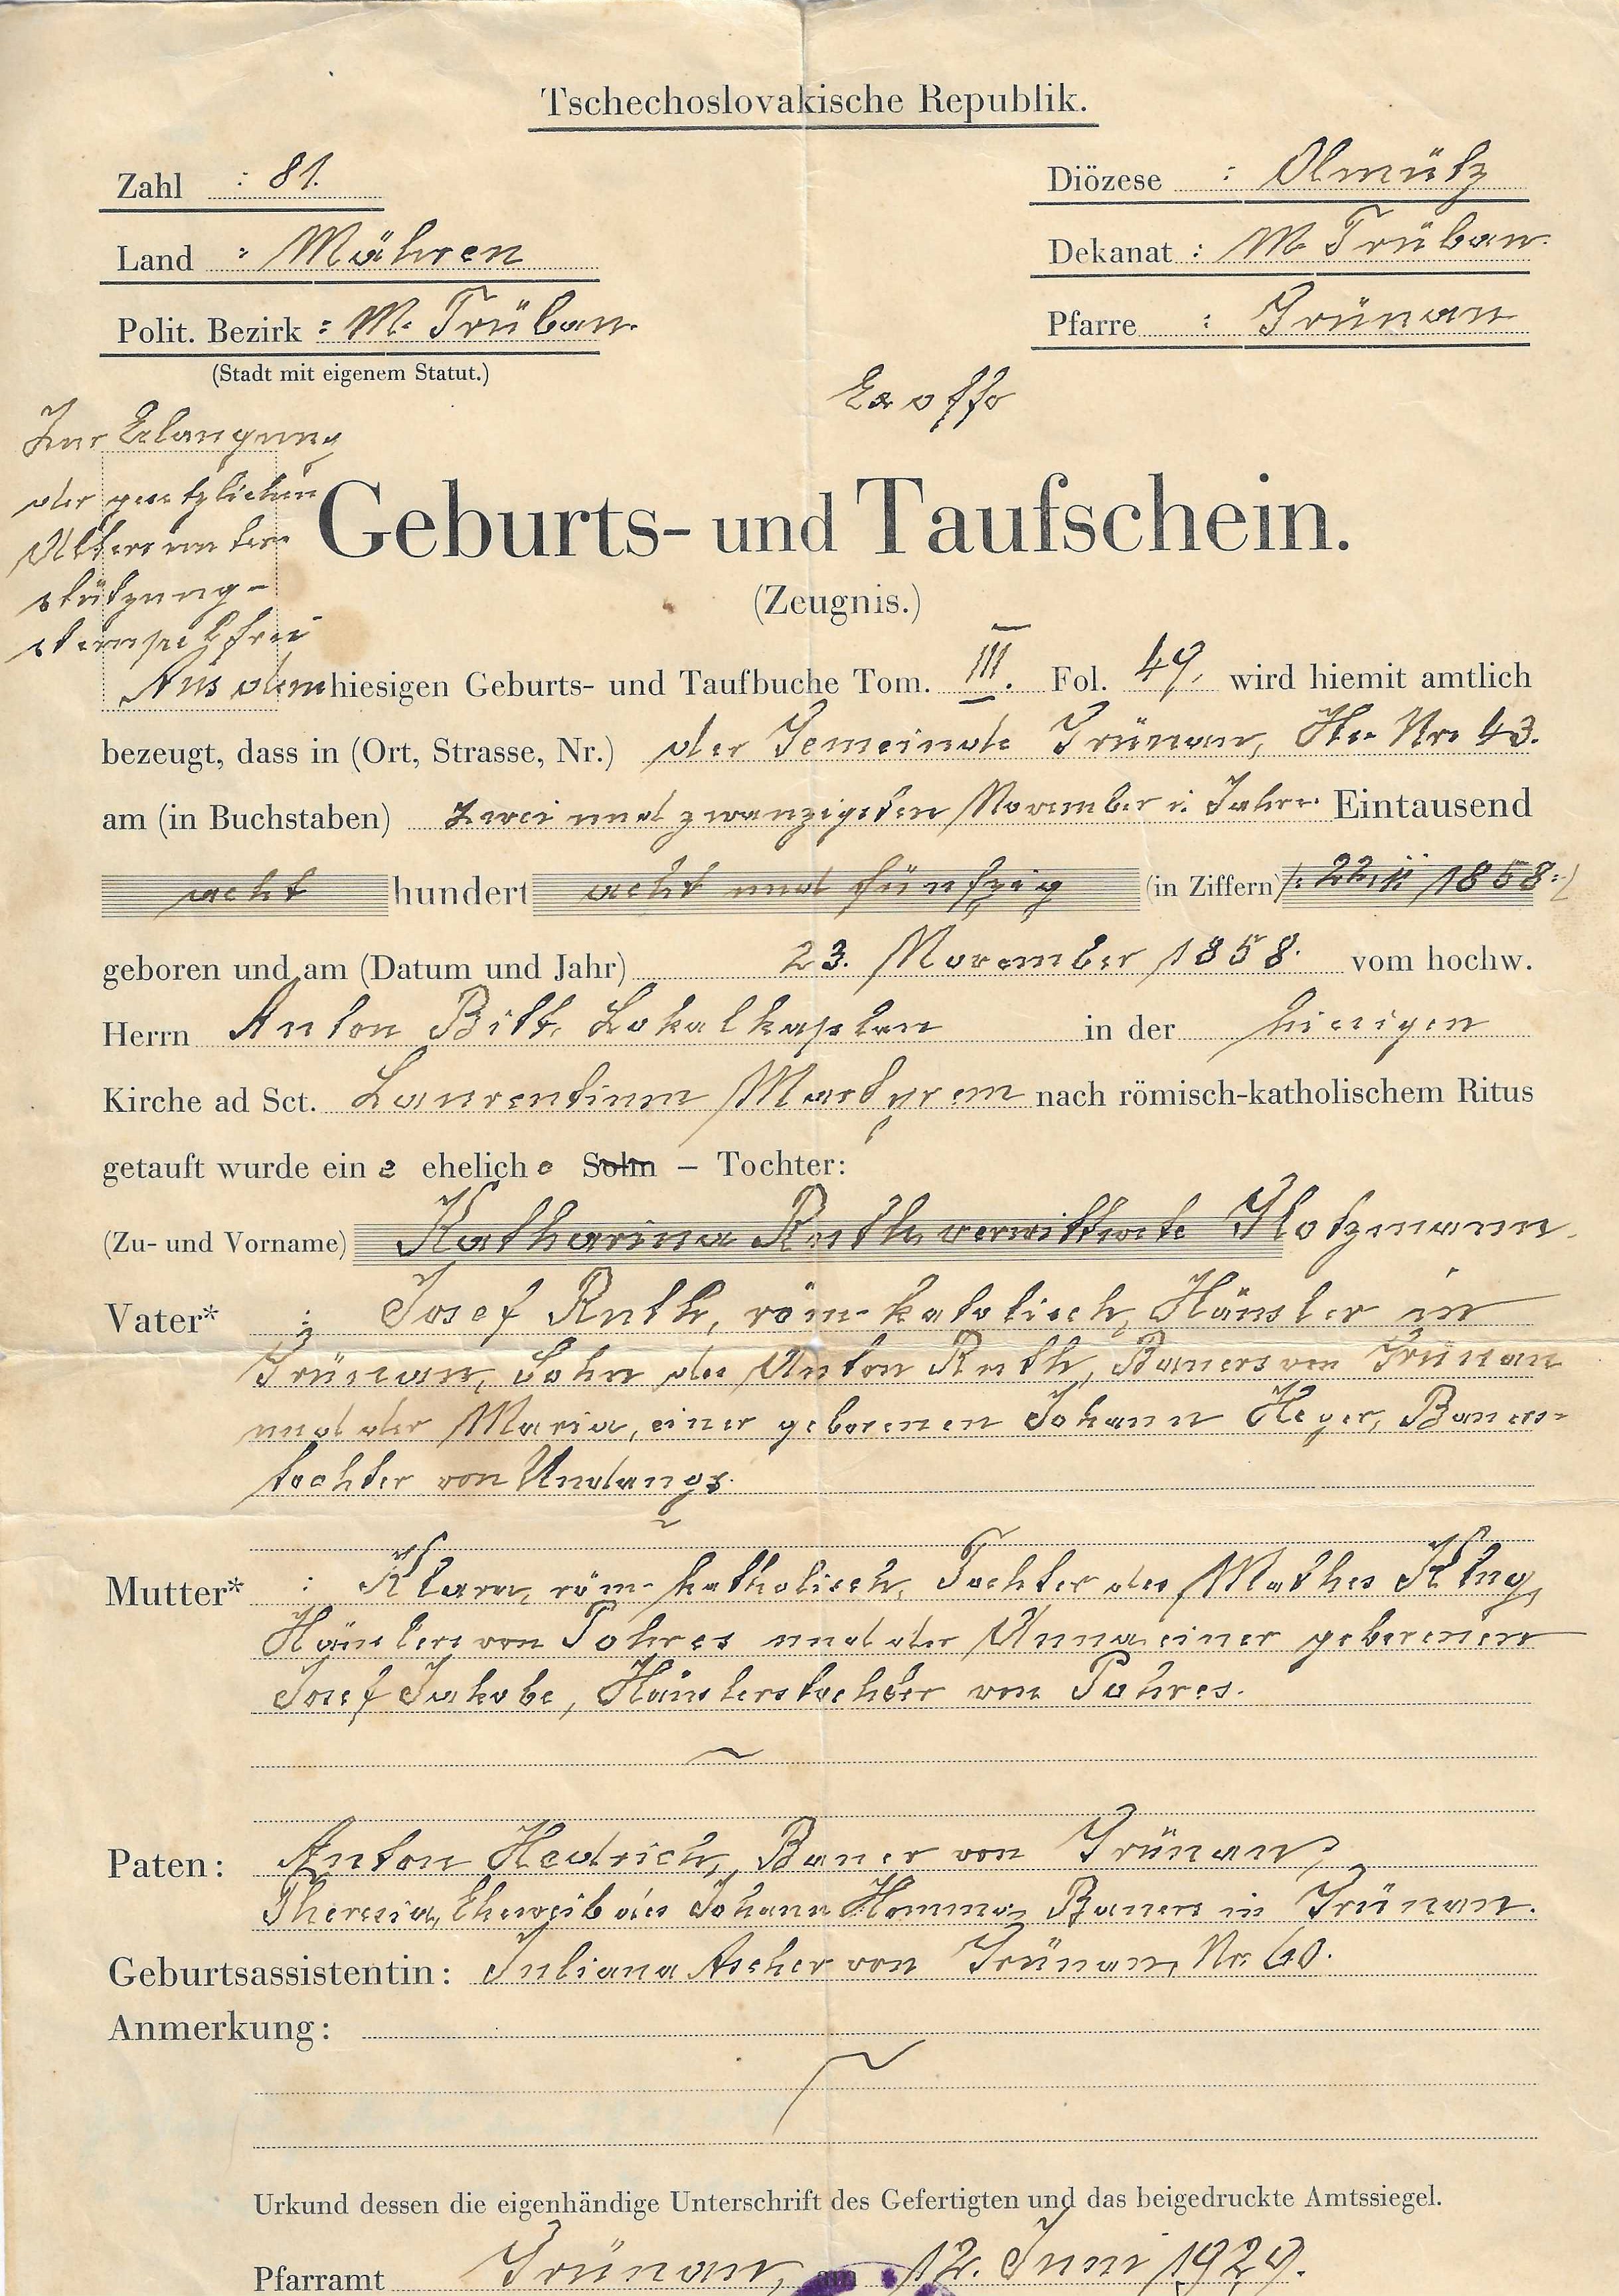 Tschechoslovakische Republik.
Zahl : 81.
Diözese : Olmütz
Land : Mähren
Dekanat : M. Trübau.
Polit. Bezirk : M. Trübau.
Pfarre : Grünau
(Stadt mit eigenem Statut.)
Ex offo
Zur Erlangung
der gesetzlichen
Altersunter-
stützung -
stempelfrei
Geburts- und Taufschein.
(Zeugnis.)
Aus dem hiesigen Geburts- und Taufbuche Tom. III. Fol. 49. wird hiemit amtlich
bezeugt, dass in (Ort, Strasse, Nr.) der Gemeinde Grünau, Hs. Nro 43.
am (in Buchstaben) Zwei und zwanzigsten November i. Jahre Eintausend
acht hundert acht und fünfzig (in Ziffern) /: 22. 11. 1858 :/
geboren und am (Datum und Jahr) 23. November 1858. vom hochw.
Herrn Anton Bitt. Lokalkaplan in der hiesigen
Kirche ad Sct. Laurentium Martyrem nach römisch-katholischem Ritus
getauft wurde ein e ehelich e Sohn – Tochter:
(Zu- und Vorname) Katharina Ruth verwittwete Glotzmann.
Vater* : Josef Ruth, röm-katolisch, Häusler in
Grünau, Sohn des Anton Ruth, Bauers von Grünau
und der Maria, einer geborenen Johann Heger, Bauers-
tochter von Undangs.
Mutter* : Klara, röm-katholisch, Tochter des Mathes Klug,
Häuslers von Pohres und der Anna einer geborenen
Josef Jakobe, Häuslerstochter von Pohres.
Paten: Anton Hedrich, Bauer von Grünau,
Theresia, Eheweib des Johann Homma, Bauers in Grünau.
Geburtsassistentin: Juliana Ascher von Grünau, Nr. 60.
Anmerkung:
Urkund dessen die eigenhändige Unterschrift des Gefertigten und das beigedruckte Amtssiegel.
Pfarramt Grünau, am 12. Juni 1929.